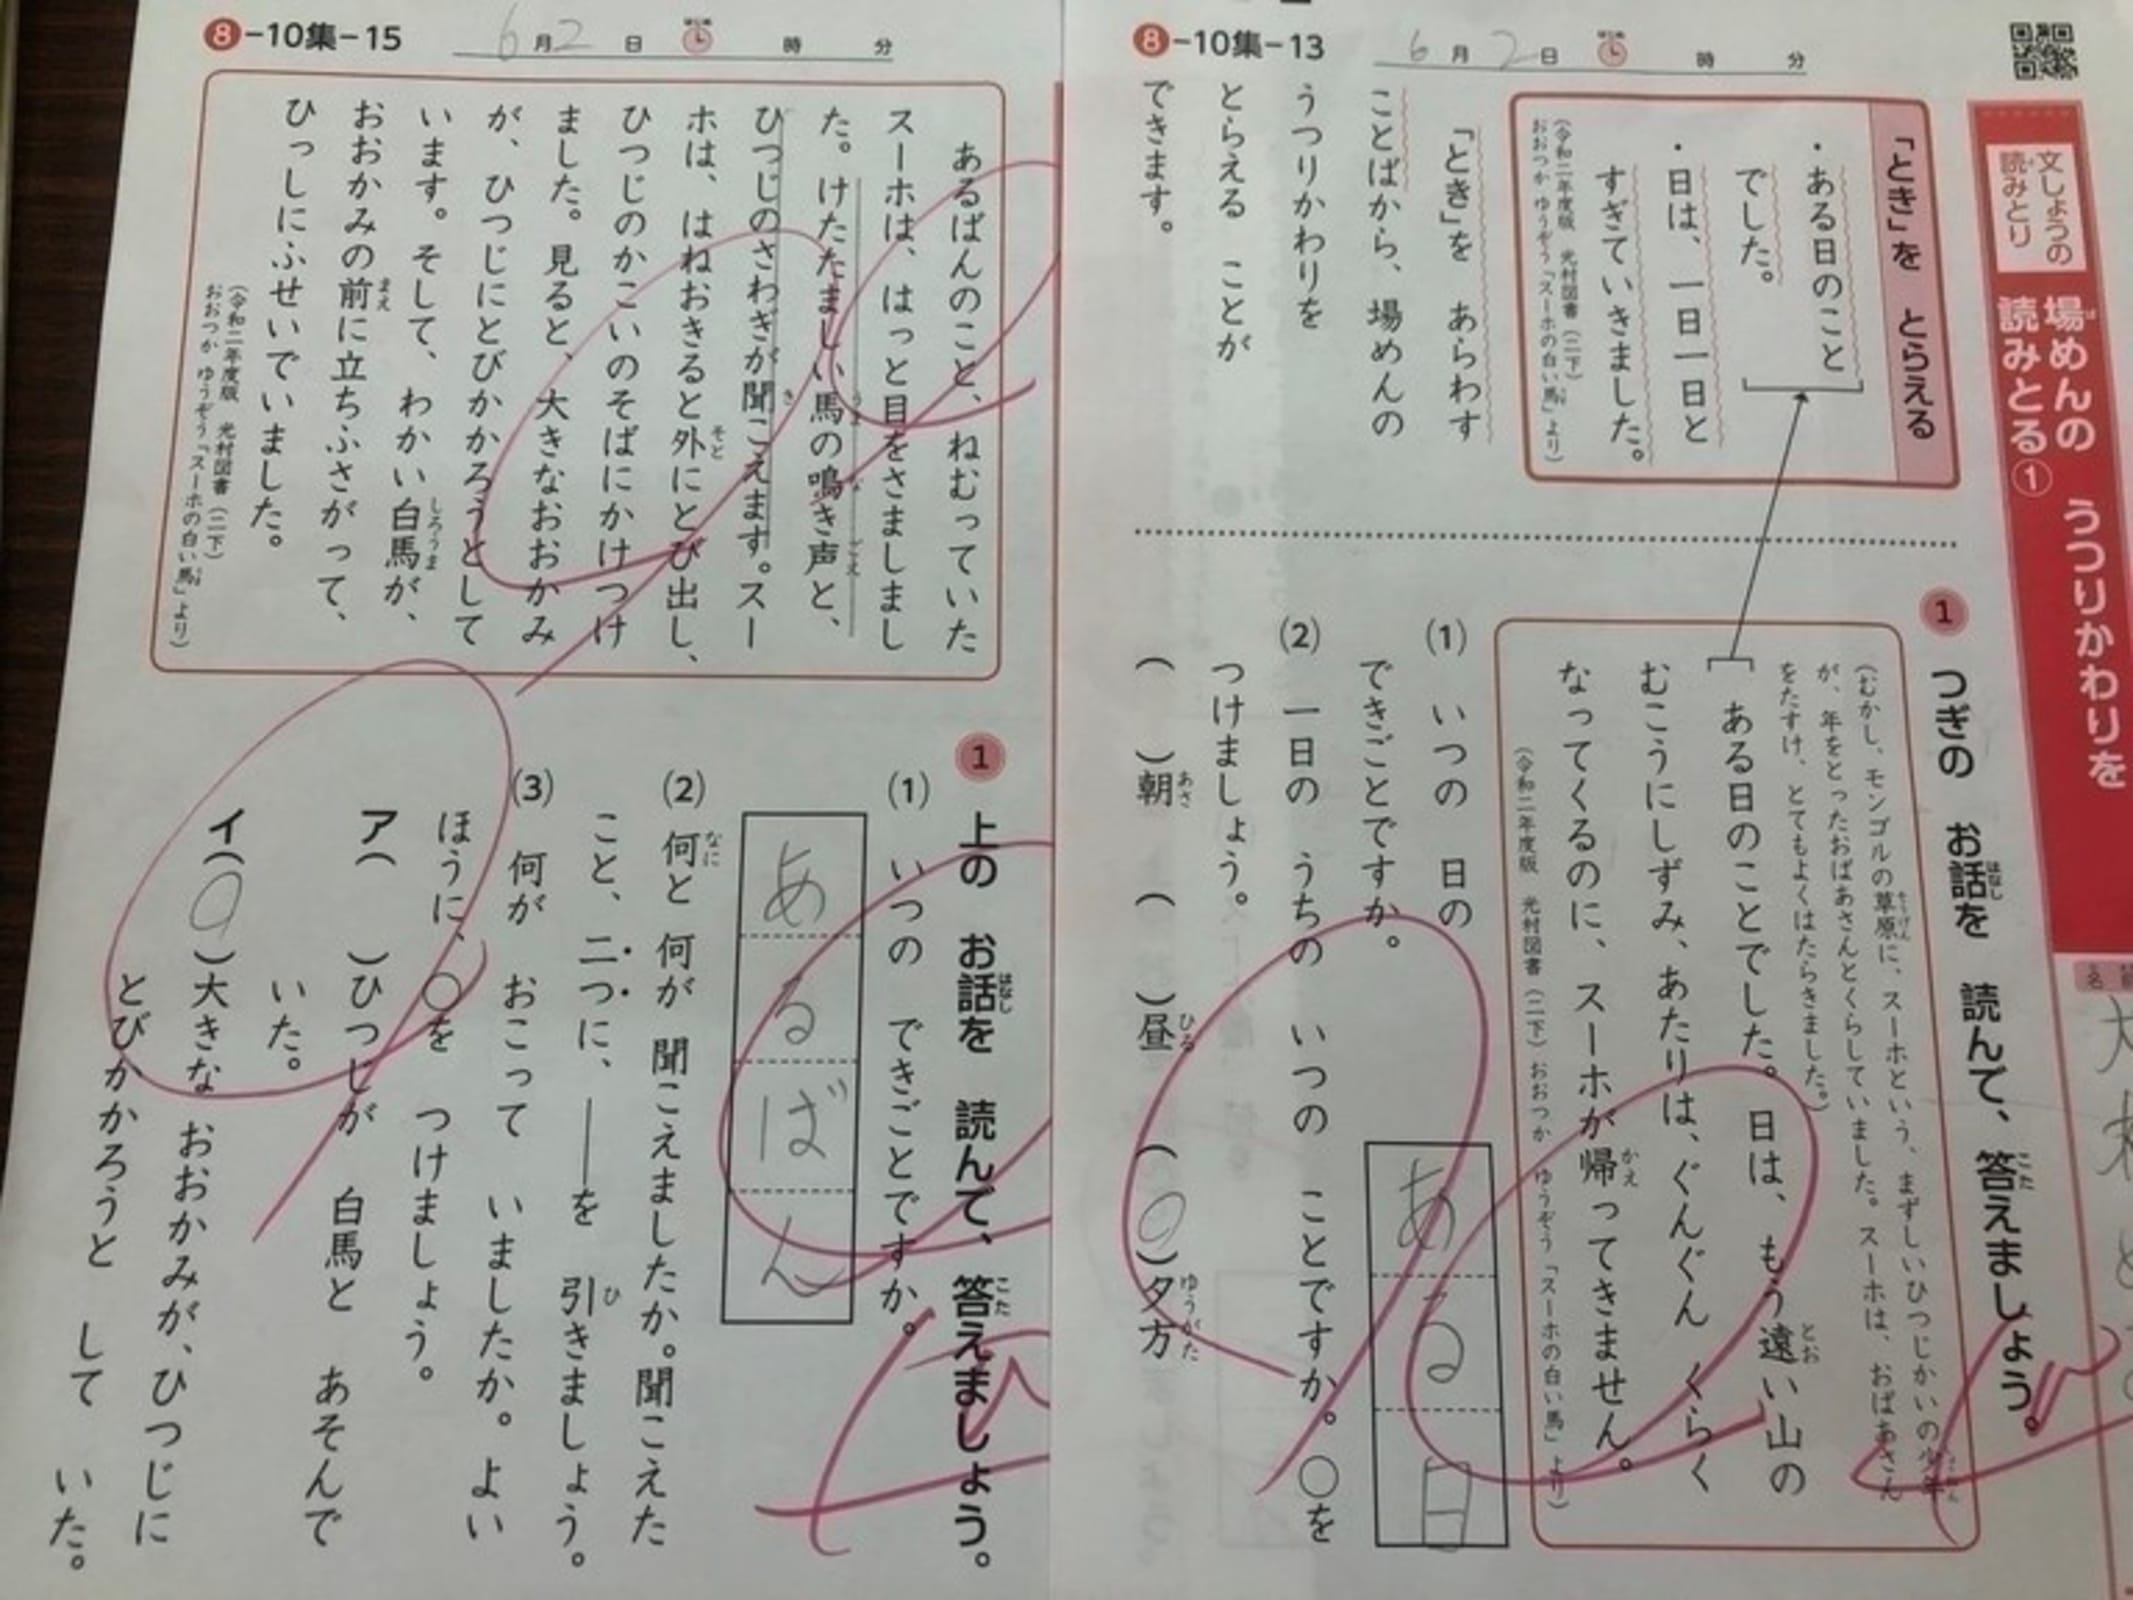 文しょうの
読みとり
場めんの うつりかわりを
読みとる①
8-10集-13
6月2日 時 分
「とき」を とらえる
・ある日のこと
でした。
・日は、一日一日と
すぎていきました。
(令和二年度版 光村図書(二下)
おおつか ゆうぞう「スーホの白い馬」より)
「とき」を あらわす
ことばから、場めんの
うつりかわりを
とらえる ことが
できます。
1 つぎの お話を 読んで、答えましょう。
(むかし、モンゴルの草原に、スーホという、まずしいひつじかいの少年
が、年をとったおばあさんとくらしていました。スーホは、おばあさん
をたすけ、とてもよくはたらきました。)
ある日のことでした。日は、もう遠い山の
むこうにしずみ、あたりは、ぐんぐん くらく
なってくるのに、スーホが帰ってきません。
(令和二年度版 光村図書(二下)おおつか ゆうぞう「スーホの白い馬」より)
(1) いつの 日の
できごとですか。
ある日
(2) 一日の うちの いつの ことですか。○を
つけましょう。
( )朝 ( )昼 (○)夕方
8-10集-15
6月2日 時 分
あるばんのこと、ねむっていた
スーホは、はっと目をさましまし
た。けたたましい馬の鳴き声と、
ひつじのさわぎが聞こえます。スー
ホは、はねおきると外にとび出し、
ひつじのかこいのそばにかけつけ
ました。見ると、大きなおおかみ
が、ひつじにとびかかろうとして
います。そして、わかい白馬が、
おおかみの前に立ちふさがって、
ひっしにふせいでいました。
(令和二年度版 光村図書(二下)
おおつか ゆうぞう「スーホの白い馬」より)
1 上の お話を 読んで、答えましょう。
(1) いつの できごとですか。
あるばん
(2) 何と 何が 聞こえましたか。聞こえた
こと、二つに、──を 引きましょう。
(3) 何が おこって いましたか。よい
ほうに、○を つけましょう。
ア( )ひつじが 白馬と あそんで
いた。
イ(○)大きな おおかみが、ひつじに
とびかかろうと して いた。